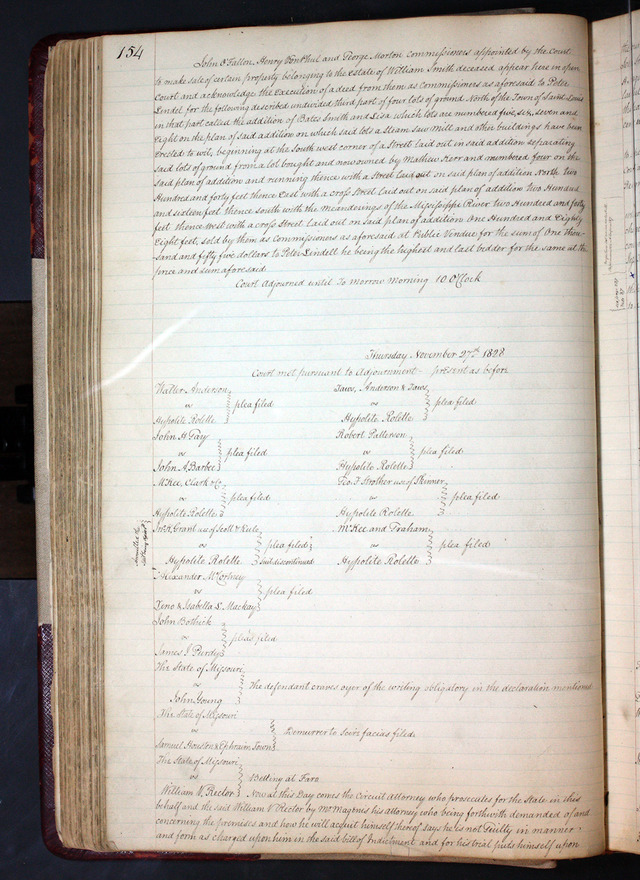 154
John O'Fallon, Henry Von Phul and George Morton commissioners appointed by the Court
to make sale of certain property belonging to the Estate of William Smith deceased appear here in open
Court and acknowledge the execution of a deed from them as Commissioners as aforesaid to Peter
Lindel for the following described undivided third part of four lots of ground North of the Town of Saint Louis
in that part called the addition of Bates Smith and Lisa which lots are numbered five, six, seven and
Eight on the plan of said addition on which said lots a Steam Saw Mill and other buildings have been
Erected to wit, beginning at the South west corner of a Street laid out in said addition separating
said lots of ground from a lot bought and now owned by Mathew Kerr and numbered four on the
said plan of addition and running thence with a Street laid out on said plan of addition North two
Hundred and forty feet thence East with a cross Street laid out on said plan of addition two Hundred
and sixteen feet thence south with the meanderings of the Mississippi River two Hundred and forty
feet thence west with a cross Street laid out on said plan of addition One Hundred and Eighty
Eight feet, sold by them as Commissioners as aforesaid at Public Vendue for the sum of One thou-
sand and fifty five dollars to Peter Lindell he being the highest and last bidder for the same at the
price and sum aforesaid
Court adjourned until To Morrow Morning 10 O'Clock
Thursday November 27th 1828
Court met pursuant to adjournment - present as before
Walter Anderson
vs plea filed
Hypolite Rolette
Taws, Anderson & Taws
vs plea filed
Hypolite Rolette
John H Gay
vs plea filed
John A Barbee
Robert Patterson
vs plea filed
Hypolite Rolette
McKee, Clark & Co
vs plea filed
Hypolite Rolette
Geo. F Strother use of Skinner
vs plea filed
Hypolite Rolette
Jno K Grant use of Scott & Rule
vs plea filed
Hypolite Rolette Suit discontinued
McKee and Graham
vs plea filed
Hypolite Rolette
Alexander McCortney
vs plea filed
Zeno & Isabella L Mackay
John Bothick
vs pleas filed
James J Purdy
The State of Missouri
vs The defendant craves oyer of the writing obligatory in the declaration mentioned
John Young
The State of Missouri
vs Demurrer to Scire facias filed
Samuel Houston & Ephraim Town
The State of Missouri
vs Betting at Faro
William V. Rector Now at this Day comes the Circuit Attorney who prosecutes for the State in this
behalf and the said William V Rector by Mr Magenis his attorney who being forthwith demanded of and
concerning the premises and how he will acquit himself thereof says he is not Guilty in manner
and form as charged upon him in the said bill of Indictment and for his trial puts himself upon